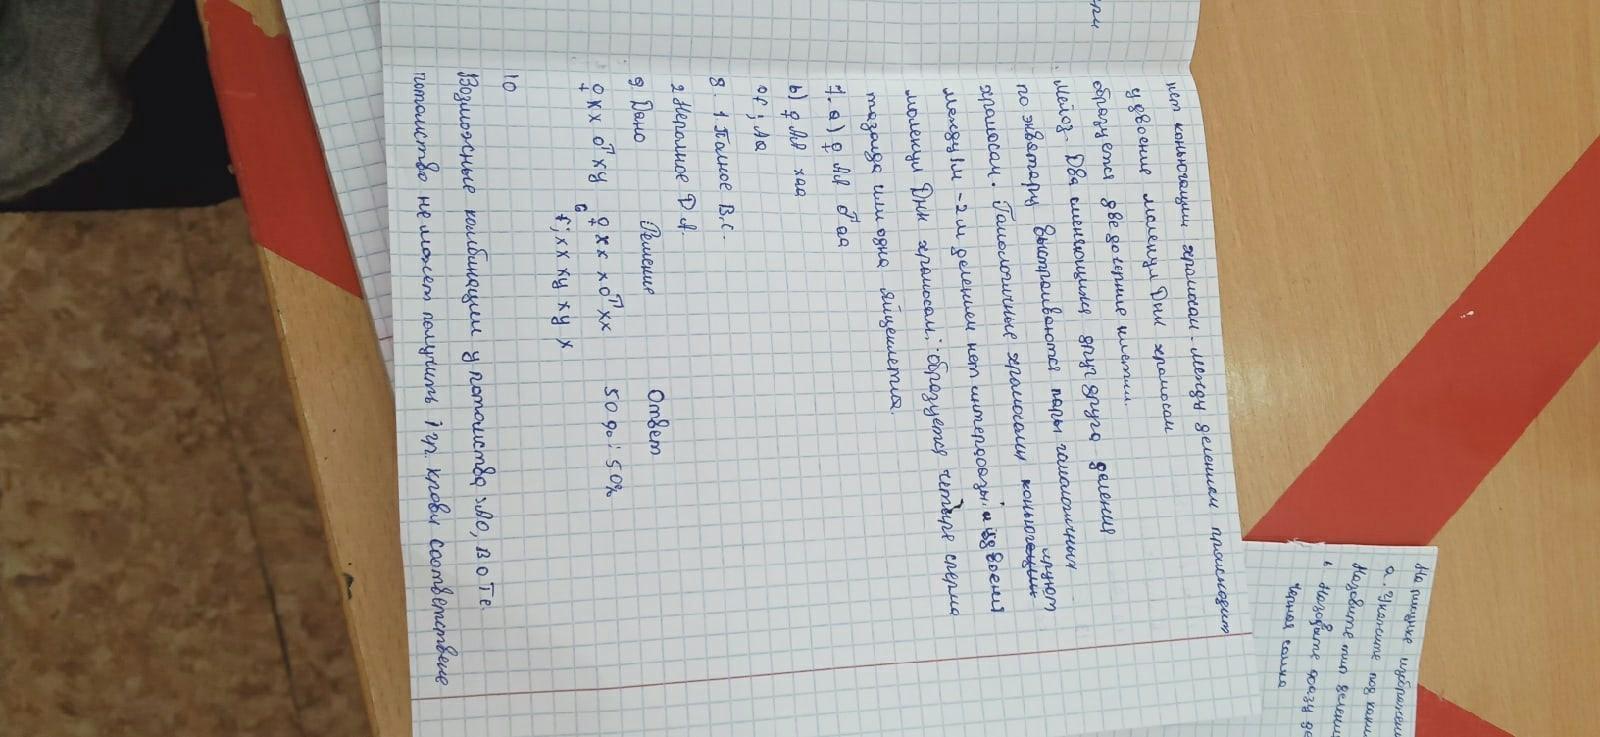 нет коньюгации храмосам. между делением происходит
удвоение малекул Днк храмосам
образуется две дочерние клетки.
Мейоз. Два сменяющих друг друга деления
по экватару выстраиваются пары гамалогичных
храмосам. Гамологичные храмосамы коньюгируют
между 1м - 2м делением нет интерфазы. и удвоения
молекул Днк храмосам. образуется четыре сперма
тазоида или одна яйцеклетка.
7. а) ♀ Ав ♂ аа
в) ♀ Ав хаа
of; Аа
8. 1 Полное В.с.
2 Неполное D A.
9 Дано Решение Ответ
♀ хх ♂ ху ♀ х х х ♂ хх 50 % : 50%
G
f; хх ху ху х
10
Возможные комбинации у потомства: АО, ВО Те.
потомство не может получить 1 гр. крови соответствене
На рисунке изображен
а. Укажите под каки
Назовите тип делени
в Назовите фазу де